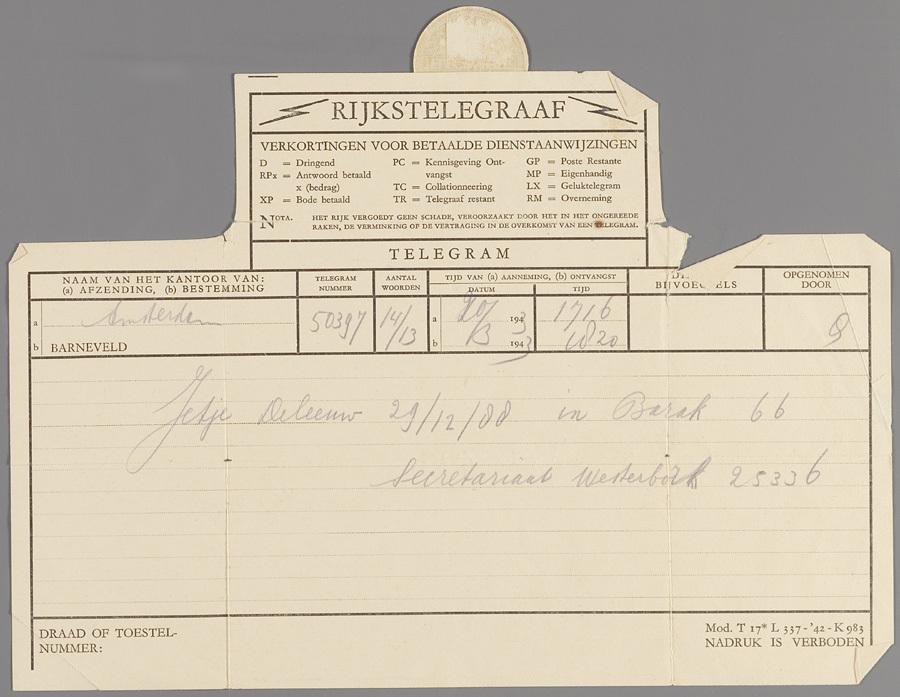 RIJKSTELEGRAAF
VERKORTINGEN VOOR BETAALDE DIENSTAANWIJZINGEN
D = Dringend
RPx = Antwoord betaald
x (bedrag)
XP = Bode betaald
PC = Kennisgeving Ont-
vangst
TC = Collationneering
TR = Telegraaf restant
GP = Poste Restante
MP = Eigenhandig
LX = Geluktelegram
RM = Overneming
NOTA. HET RIJK VERGOEDT GEEN SCHADE, VEROORZAAKT DOOR HET IN HET ONGEREEDE
RAKEN, DE VERMINKING OP DE VERTRAGING IN DE OVERKOMST VAN EEN TELEGRAM.
TELEGRAM
NAAM VAN HET KANTOOR VAN:
(a) AFZENDING, (b) BESTEMMING
TELEGRAM
NUMMER
AANTAL
WOORDEN
TIJD VAN (a) AANNEMING, (b) ONTVANGST
DATUM TIJD
BIJVOEGSELS
OPGENOMEN
DOOR
a Amsterdam 50397 14/13 a 20/ 1943 1716
b BARNEVELD b /3 1943 1820
Jetje Deleeuw 29/12/88 in Barak 66
Secretariaat Westerbork 25336
DRAAD OF TOESTEL-
NUMMER:
Mod. T 17* L 337-'42-K 983
NADRUK IS VERBODEN